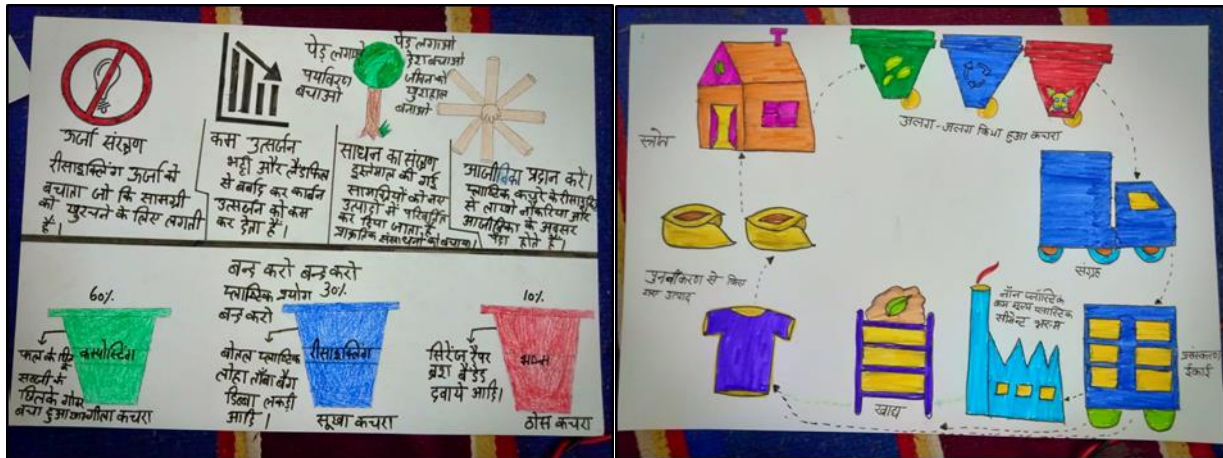 पेड़ लगाओ
पर्यावरण
बचाओ
पेड़ लगाओ
देश बचाओ
जीवन को
खुशहाल
बनाओ
ऊर्जा संरक्षण
रीसाइक्लिंग ऊर्जा को
बचाता जो कि सामग्री
को खुरचने के लिए लगती
है।
कम उत्सर्जन
भट्टी और लैंडफिल
से बर्बाद कर कार्बन
उत्सर्जन को कम
कर देता है।
साधन का संरक्षण
इस्तेमाल की गई
सामग्रियों को नए
उत्पादों में परिवर्तित
कर दिया जाता है
प्राकृतिक संसाधनों को बचाकर।
आजीविका प्रदान करें।
प्लास्टिक कचरे के
से लाखों नौकरियां और
आजीविका के अवसर
पैदा होते हैं।
बन्द करो बन्द करो
प्लास्टिक प्रयोग
बन्द करो
60%
कम्पोस्टिंग
सब्जी के
छिलके
बचा हुआ
गीला कचरा
30%
रीसाइक्लिंग
बोतल प्लास्टिक
लोहा ताँबा बैग
डिब्बा लकड़ी
आदि।
सूखा कचरा
10%
सिरेंज रैपर
ब्रश बैंडेड
दवाये आदि।
ठोस कचरा
स्त्रोत
अलग-अलग किया हुआ कचरा
संग्रह
ईकाई
नॉन प्लॉस्टिक
कम मूल्य प्लास्टिक
सीमेन्ट भस्म
खाद्य
पुनर्नवीकरण से किए
गए उत्पाद